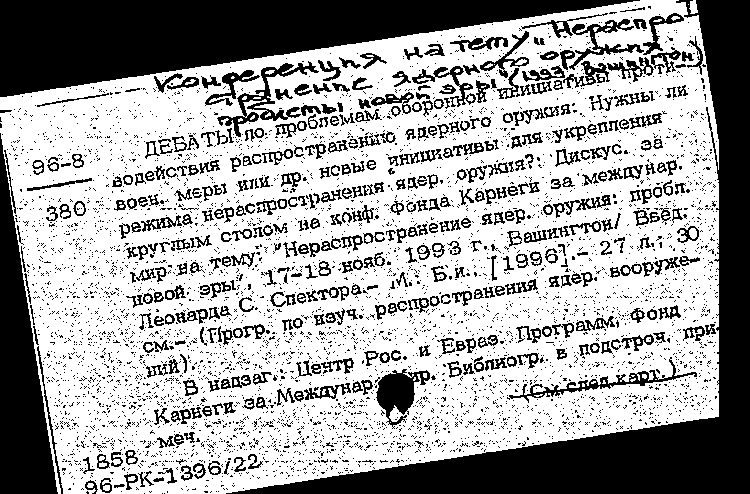 Конференция на тему „Нераспро-
странение ядерного оружия.
проблемы новой эры" (1993, Вашингтон)
ДЕБАТЫ по проблемам оборонной инициативы проти-
96-8
водействия распространению ядерного оружия: Нужны ли
воен. меры или др. новые инициативы для укрепления
380
режима нераспространения ядер. оружия?: Дискус. за
круглым столом на конф. Фонда Карнеги за междунар.
мир на тему: "Нераспространение ядер. оружия: пробл.
новой эры", 17-18 нояб. 1993 г., Вашингтон/ Введ.
Леонарда С. Спектора.- М.: Б.и., [1996].- 27 л.; 30
см.- (Прогр. по изуч. распространения ядер. вооруже-
ний).
В надзаг.: Центр Рос. и Евраз. Программ, Фонд
Карнеги за Междунар. Мир. Библиогр. в подстроч. при-
меч.
(См.след.карт.)
1858
96-РК-1396/22